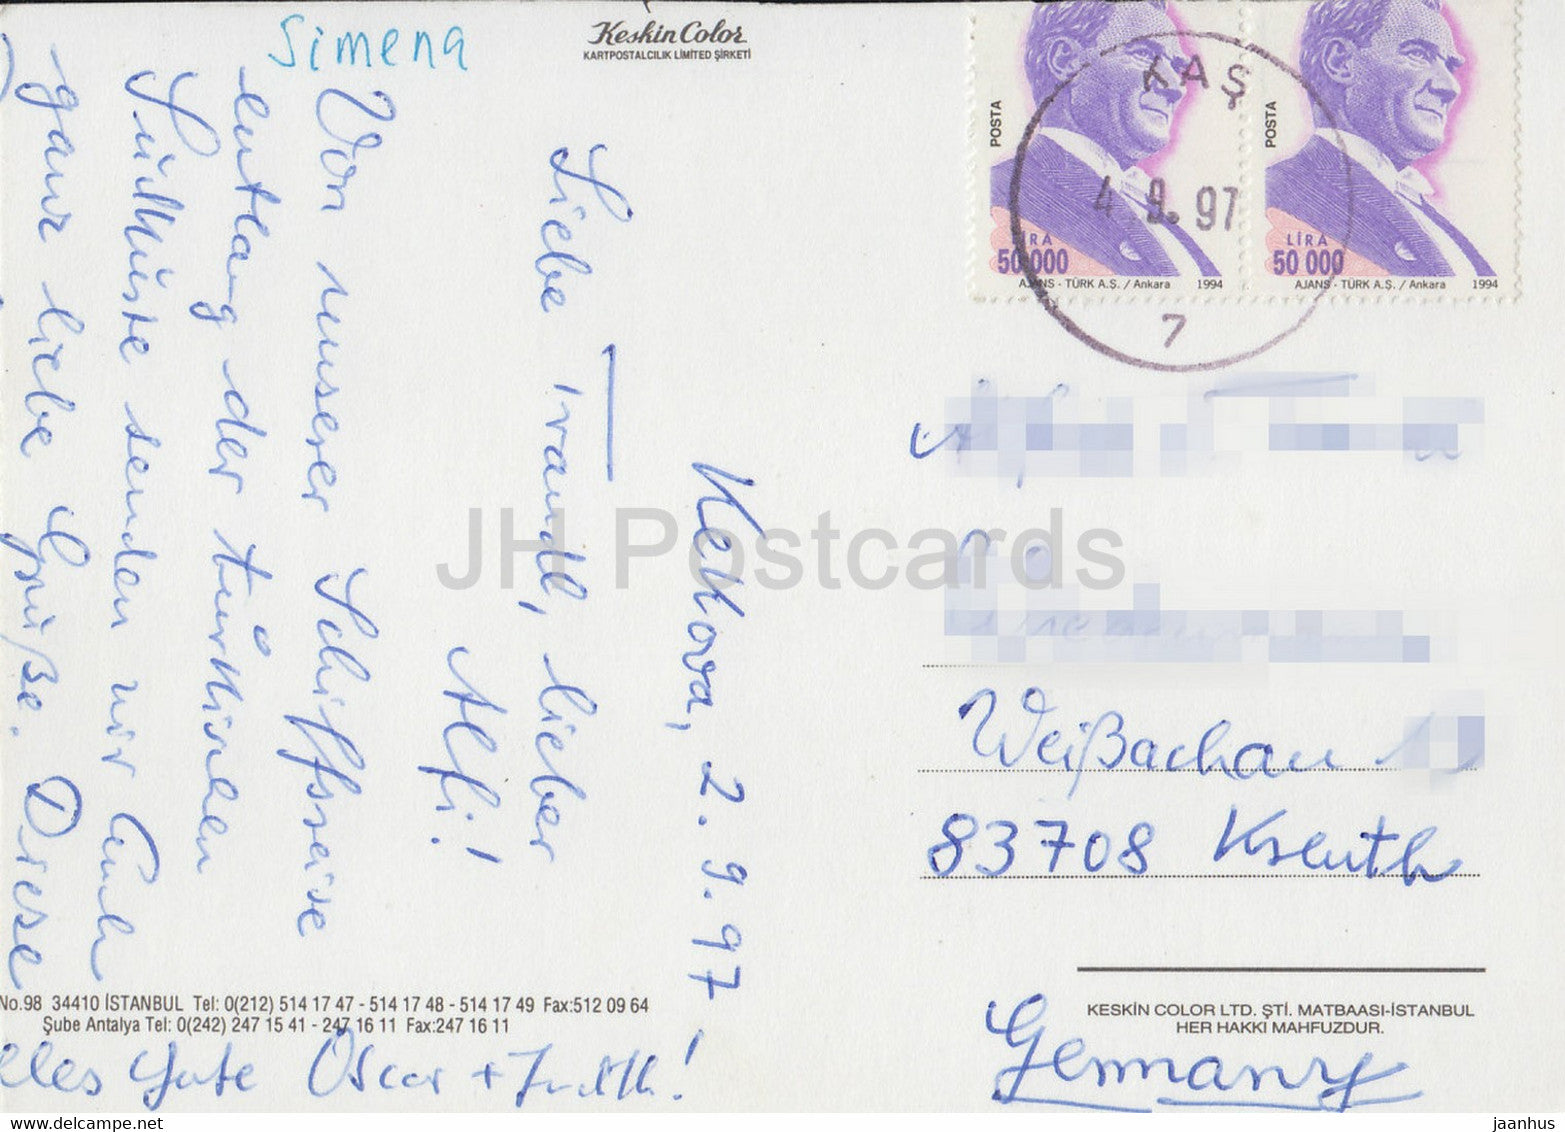 Simena
Keskin Color
KARTPOSTALCILIK LIMITED ŞIRKETİ
Kekova, 2.9.97
Liebe Traudl, lieber
Alfi!
Von unserer Schiffsreise
entlang der türkischen
Südküste senden wir Euch
ganz liebe Grüße. Diese
No.98 34410 İSTANBUL Tel: 0(212) 514 17 47 - 514 17 48 - 514 17 49 Fax:512 09 64
Şube Antalya Tel: 0(242) 247 15 41 - 247 16 11 Fax:247 16 11
lles Gute Oscar +
POSTA
LİRA
50 000
AJANS - TÜRK A.Ş. / Ankara 1994
POSTA
LİRA
50 000
AJANS - TÜRK A.Ş. / Ankara 1994
KAŞ
4.9.97
7
Weißachau
83708 Kreuth
Germany
KESKİN COLOR LTD. ŞTİ. MATBAASI-İSTANBUL
HER HAKKI MAHFUZDUR.
JH Postcards
delcampe.net
jaanhus